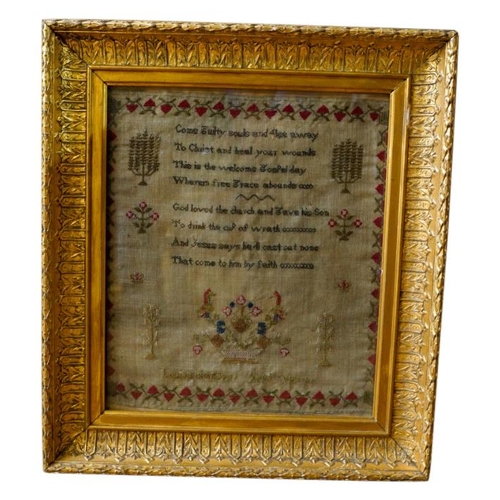 Come Guilty souls and flee away
To Christ and heal your wounds
This is the welcome Gospel day
Wherein free Grace abounds
God loved the church and Gave his Son
To drink the cup of wrath
And Jesus says he'll cast out none
That come to him by faith